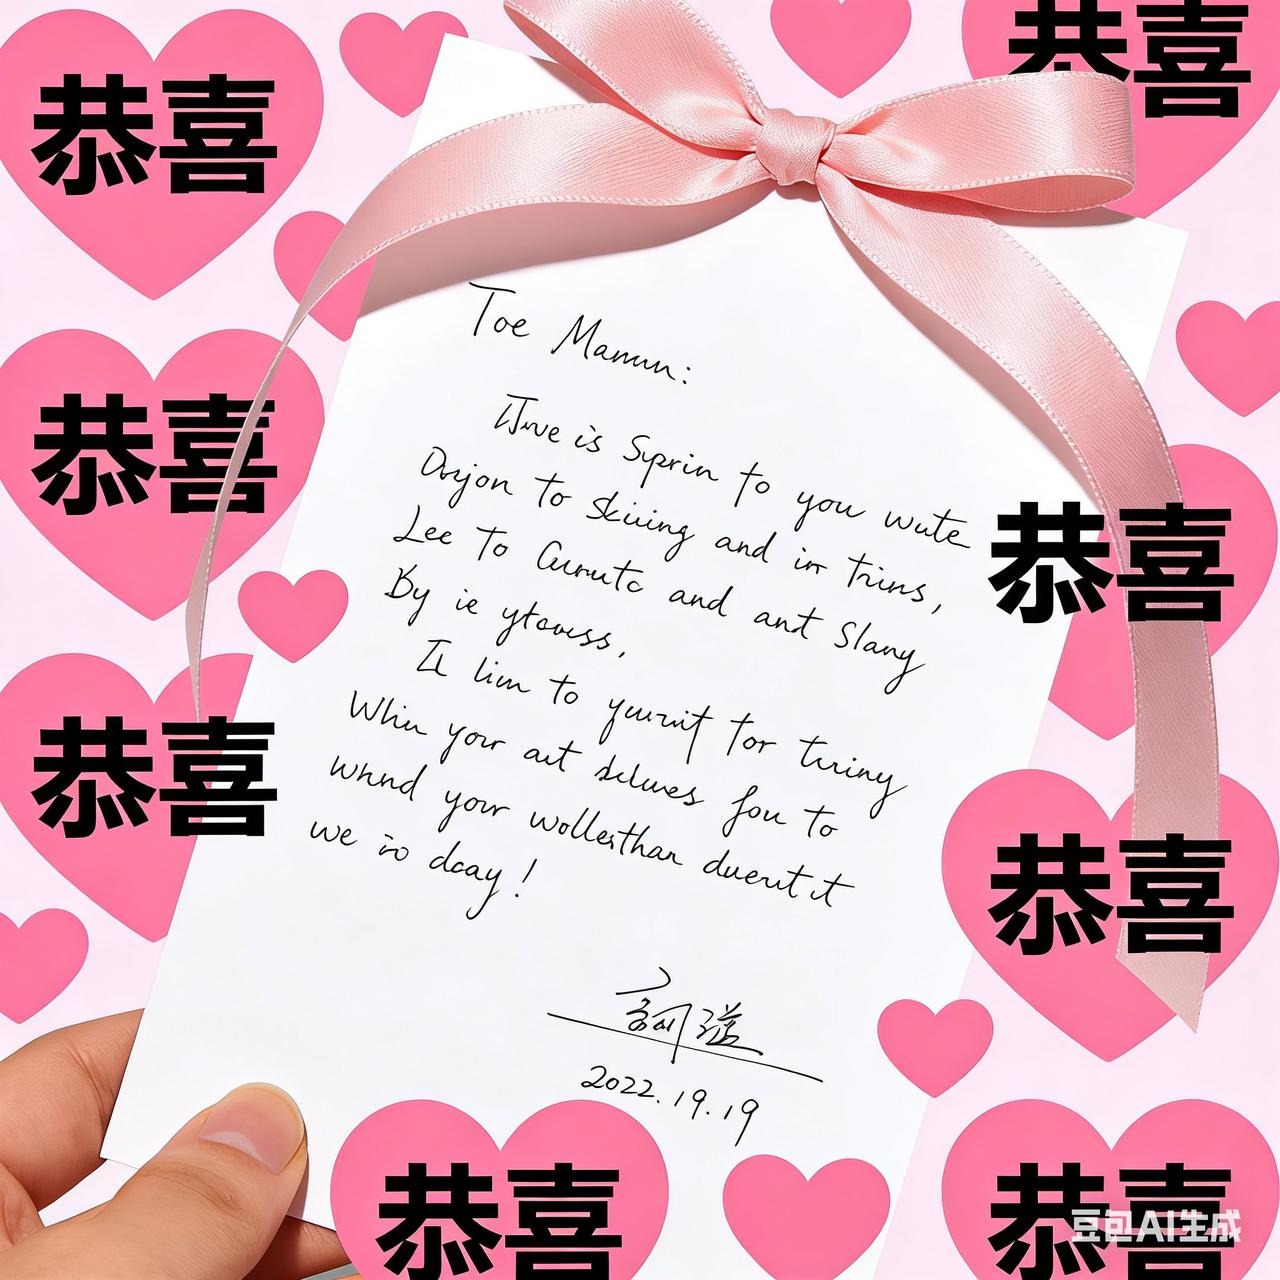 恭喜
恭喜
恭喜
恭喜
恭喜
恭喜
恭喜
恭喜
Toe Mamun:
is Sprin to you wute
Onjon to Skiing and in trins,
Lee To Curutc and ant Slany
By ie ytowss,
It lim to yurrit for turiny
Whin your aut delues fou to
whnd your wollesthan duent it
we io doay!
2022.19.19
豆包AI生成